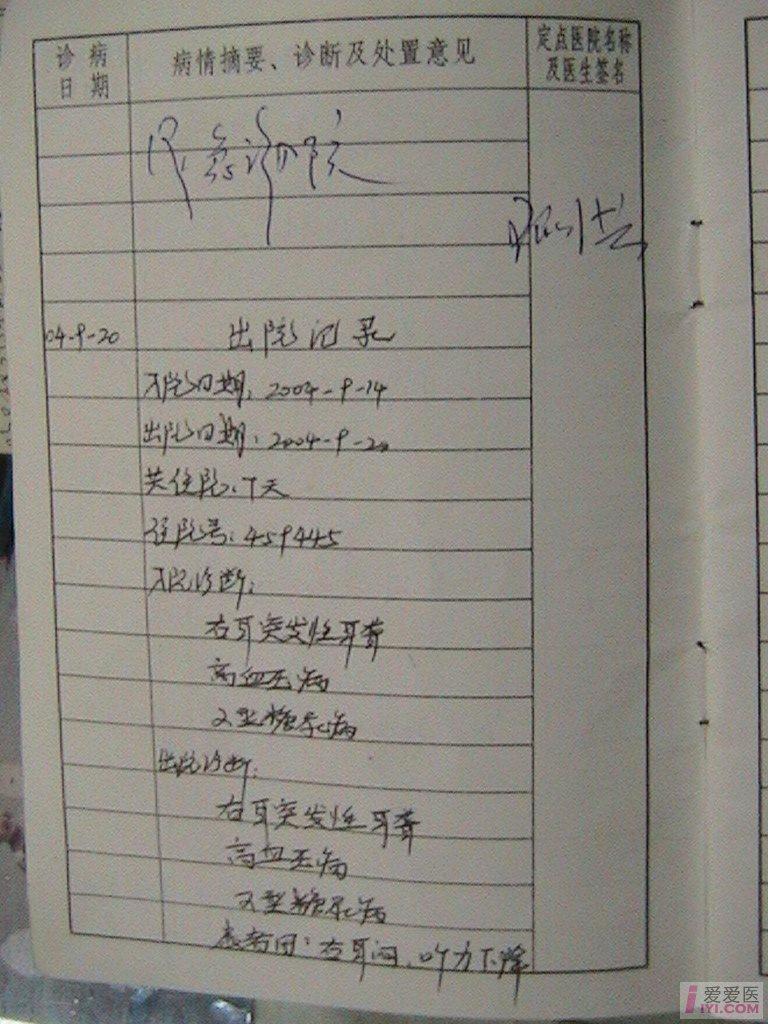 诊病日期
病情摘要、诊断及处置意见
定点医院名称及医生签名
急诊入院
04-9-20
出院记录
入院日期：2004-9-14
出院日期：2004-9-20
共住院：7天
住院号：459445
入院诊断：
右耳突发性耳聋
高血压病
2型糖尿病
出院诊断：
右耳突发性耳聋
高血压病
2型糖尿病
患者因：右耳闷、听力下降
爱爱医
iIYI.COM